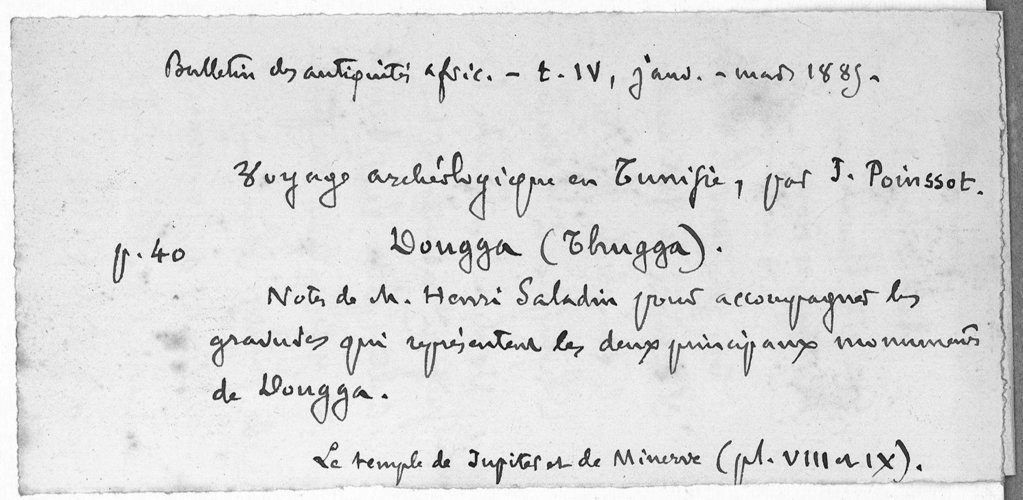 Bulletin des antiquités afric. - t. IV, janv. - mars 1885.
Voyage archéologique en Tunisie, par J. Poinssot.
p. 40 Dougga (Thugga).
Notes de M. Henri Saladin pour accompagner les
gravures qui représentent les deux principaux monuments
de Dougga.
Le temple de Jupiter et de Minerve (pl. VIII et IX).